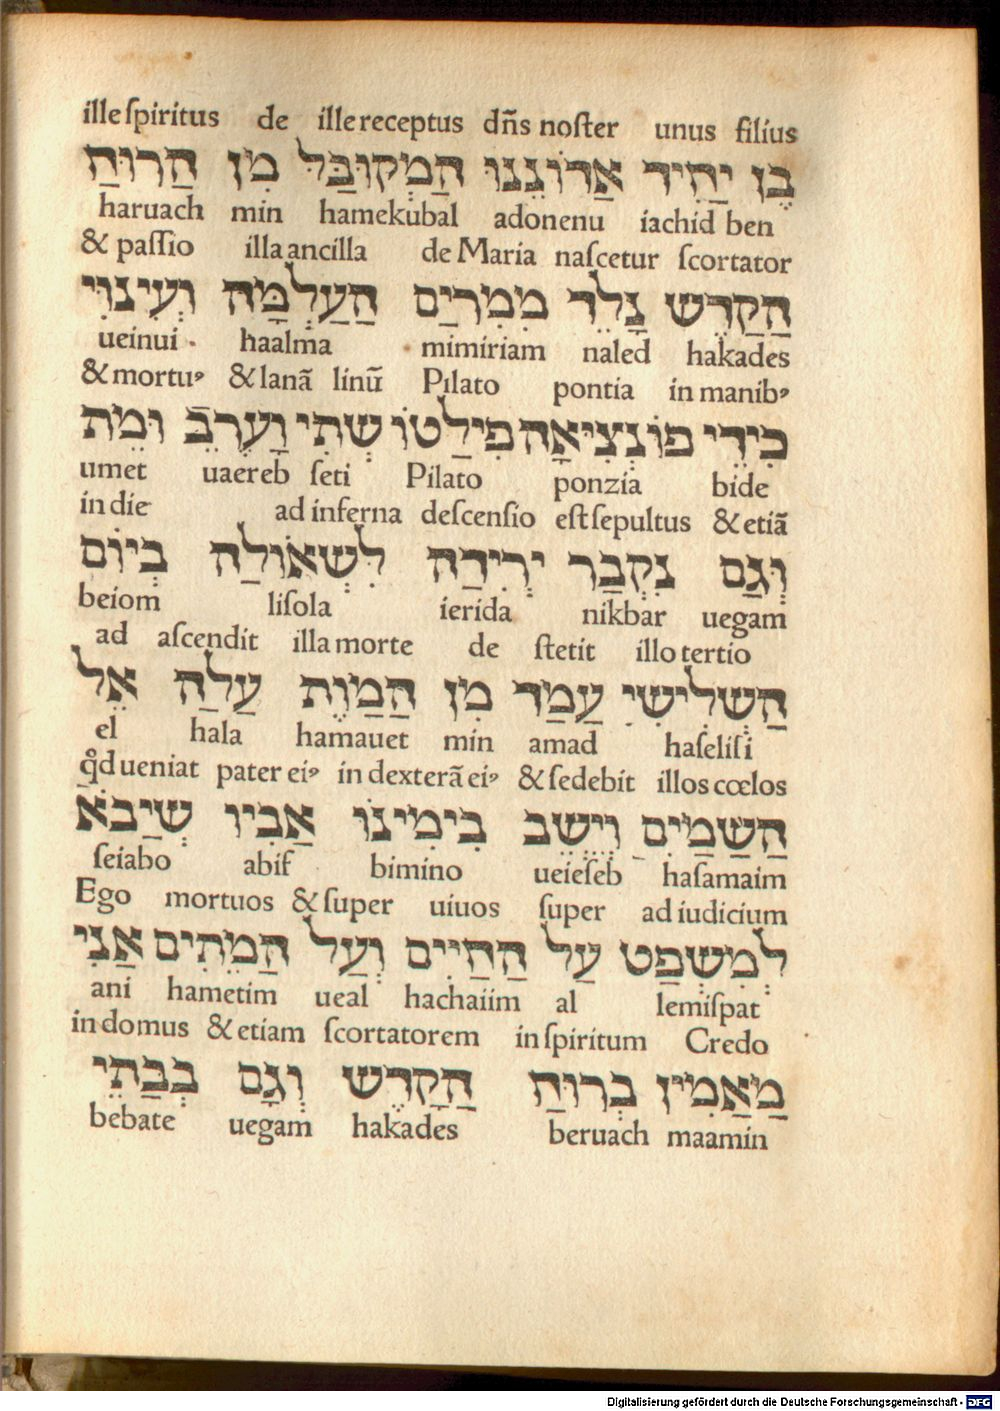 illeſpiritus de illereceptus dn̄s noſter unus filius
בֶן יַחִיד אֲדוֹנֵנוּ הַמְקוּבַּל מִן הַרוּחַ
haruach min hamekubal adonenu iachid ben
& paſſio illa ancilla de Maria naſcetur ſcortator
הַקַדֵשׁ נָלֵד מִמִרְיַם הַעַלְמָּה וְעִינוּיִ
ueinui haalma mimiriam naled hakades
& mortuꝰ & lanā linū Pilato pontia in manibꝰ
בִידֵי פוֹנְצִיאָה פִילַטוֹ שְׁתִי וָעֵרֶב וּמֵת
umet uaereb ſeti Pilato ponzia bide
in die ad inferna deſcenſio eſt ſepultus & etiā
וְגַם נִקְבַר יְרִידַה לִשְׁאוֹלַה בְיוֹם
beiom liſola ierida nikbar uegam
ad aſcendit illa morte de ſtetit illo tertio
הַשְׁלִישִׁי עַמַד מִן הַמַוֶת עַלַה אֶל
el hala hamauet min amad haſeliſi
qd̊ ueniat pater eiꝰ in dexterā eiꝰ & ſedebit illos cœlos
הַשַׁמַיִם וְיֵשֵׁב בִימִינוֹ אַבִיו שְׁיַבֹא
ſeiabo abif bimino ueieſeb haſamaim
Ego mortuos & ſuper uiuos ſuper ad iudicium
לְמִשְׁפַט עַל הַחַיִים וְעַל הַמֵתִים אַנִי
ani hametim ueal hachaiim al lemiſpat
in domus & etiam ſcortatorem in ſpiritum Credo
מַאַמִין בְרוּחַ הַקָדֵשׁ וְגָם בְבַתֵי
bebate uegam hakades beruach maamin
Digitalisierung gefördert durch die Deutsche Forschungsgemeinschaft - DFG